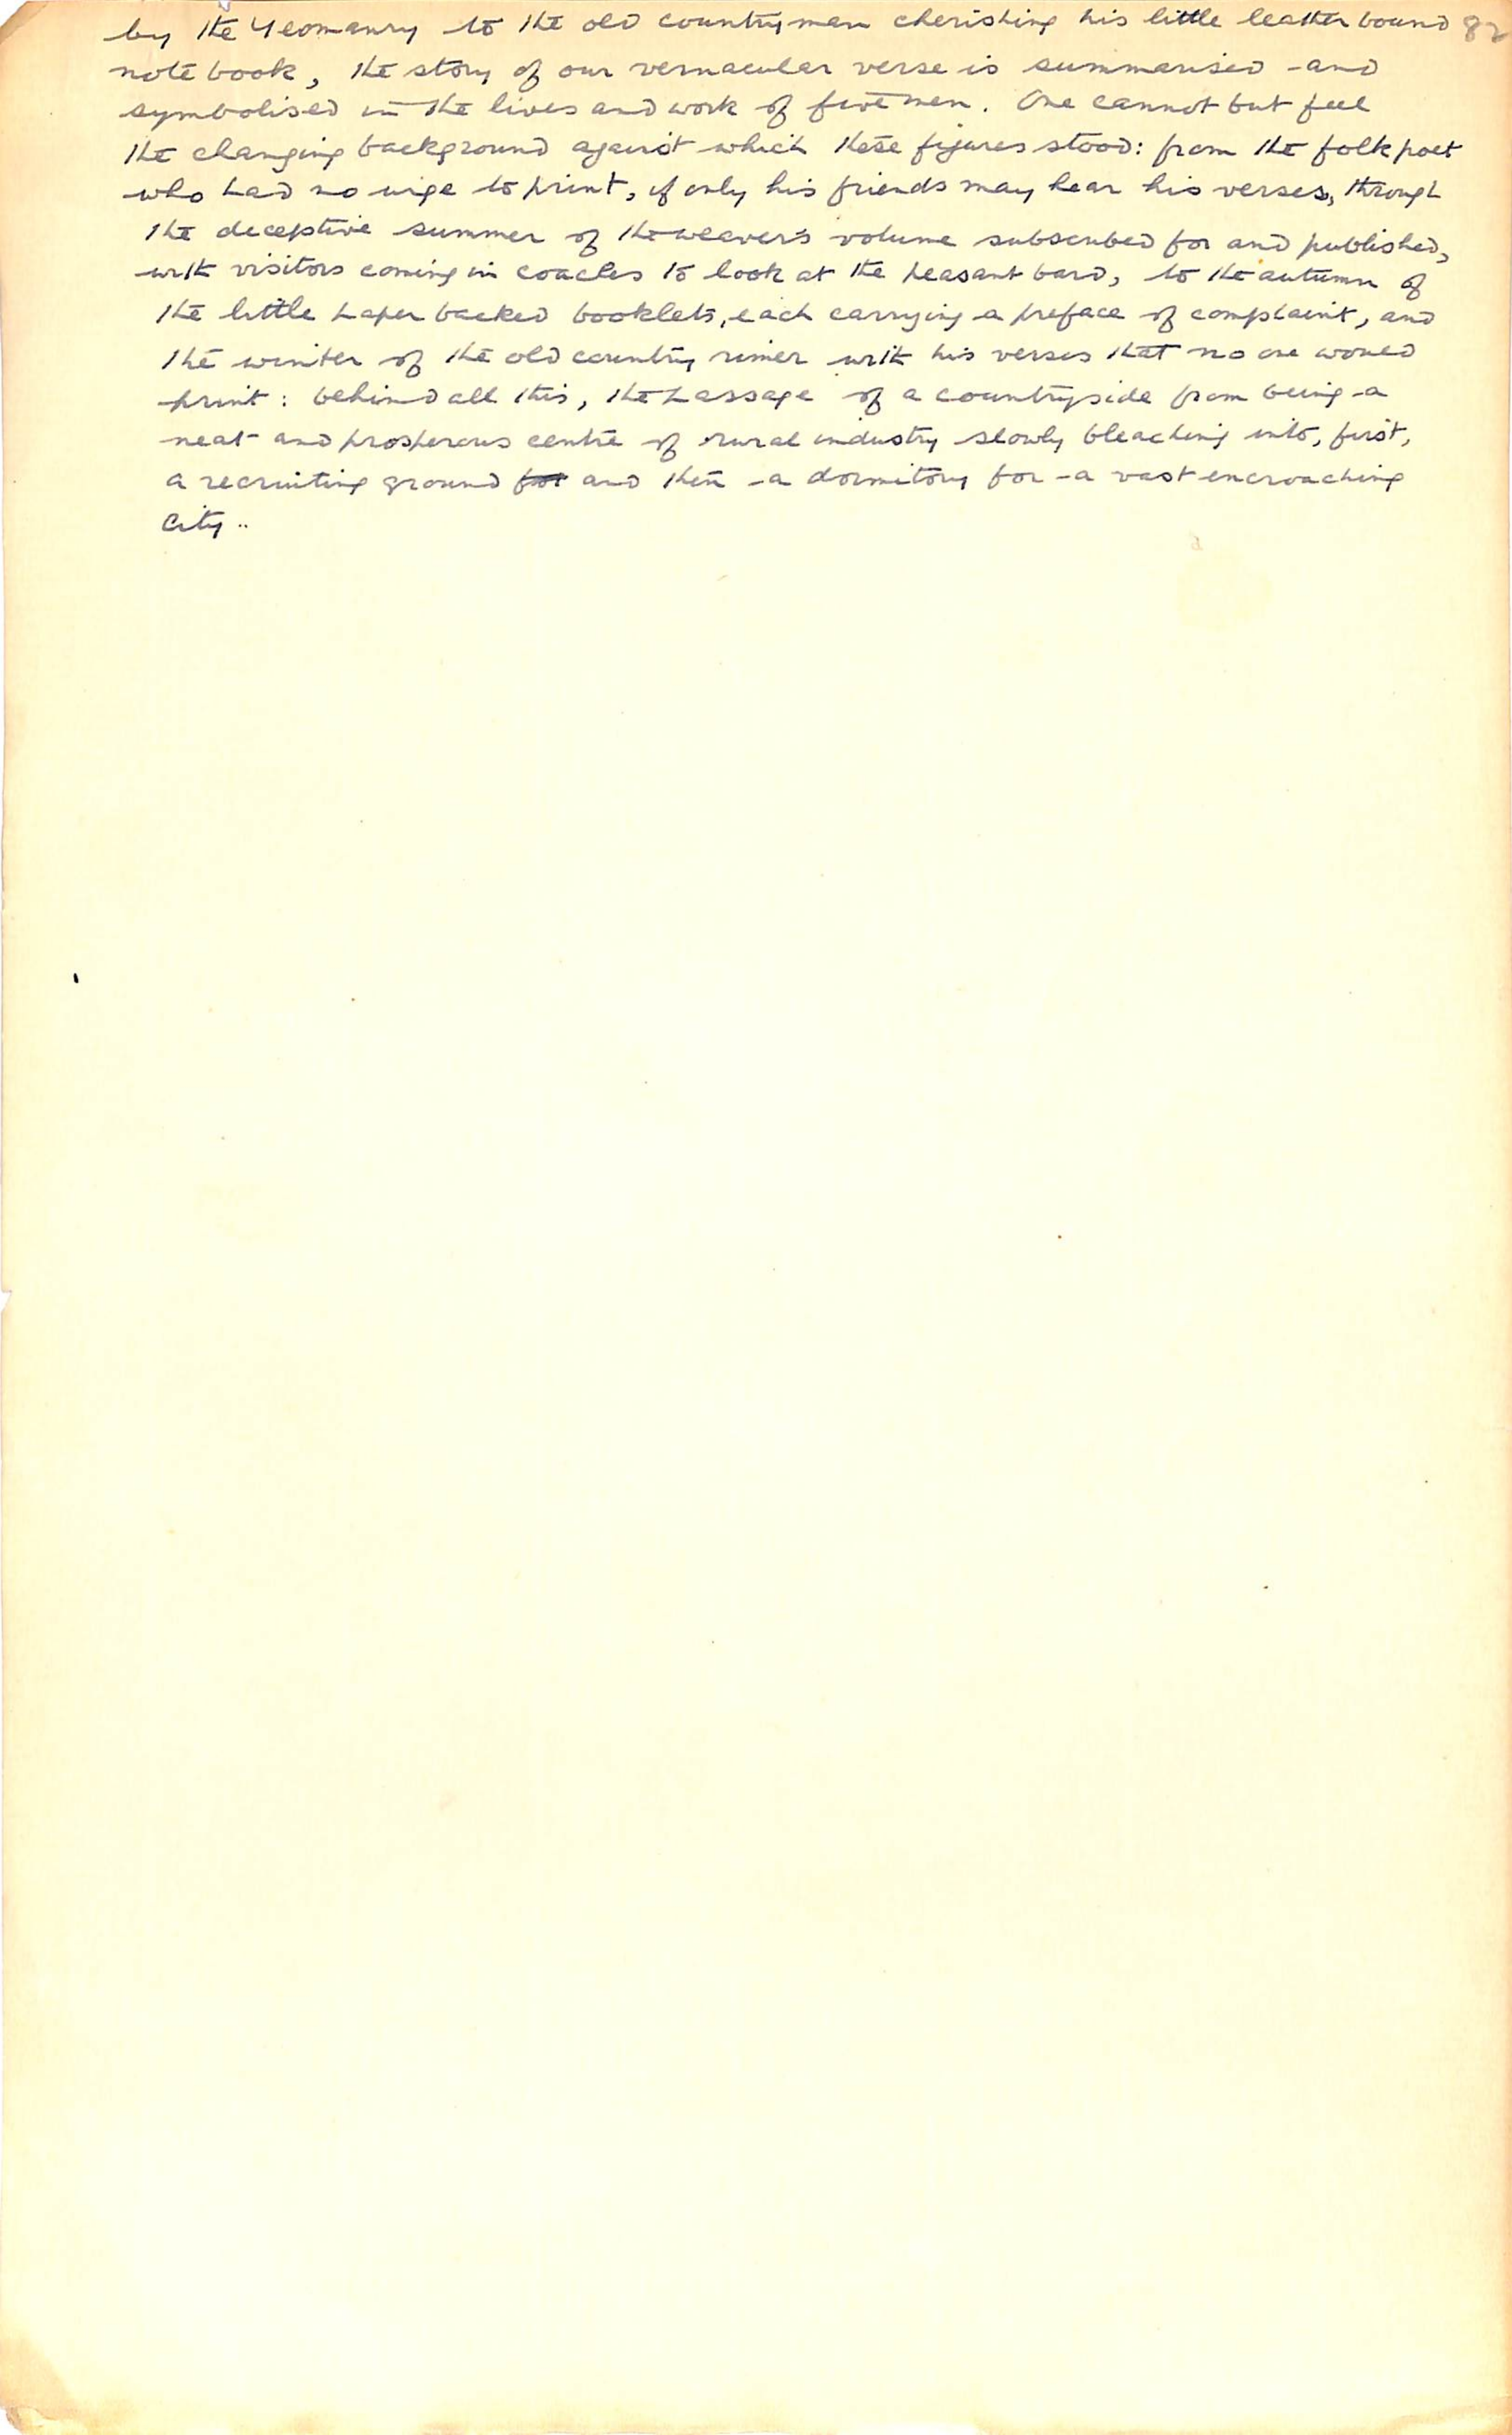 by the Yeomanry to the old countryman cherishing his little leather bound 82
note book, the story of our vernacular verse is summarised and
symbolised in the lives and work of five men. One cannot but feel
the changing background against which these figures stood: from the folk poet
who had no urge to print, if only his friends may hear his verses, through
the deceptive summer of the weaver's volume subscribed for and published,
with visitors coming in coaches to look at the peasant bard, to the autumn of
the little paper backed booklets, each carrying a preface of complaint, and
the winter of the old country rimer with his verses that no one would
print: behind all this, the passage of a countryside from being a
neat and prosperous centre of rural industry slowly bleaching into, first,
a recruiting ground for and then a dormitory for a vast encroaching
city..